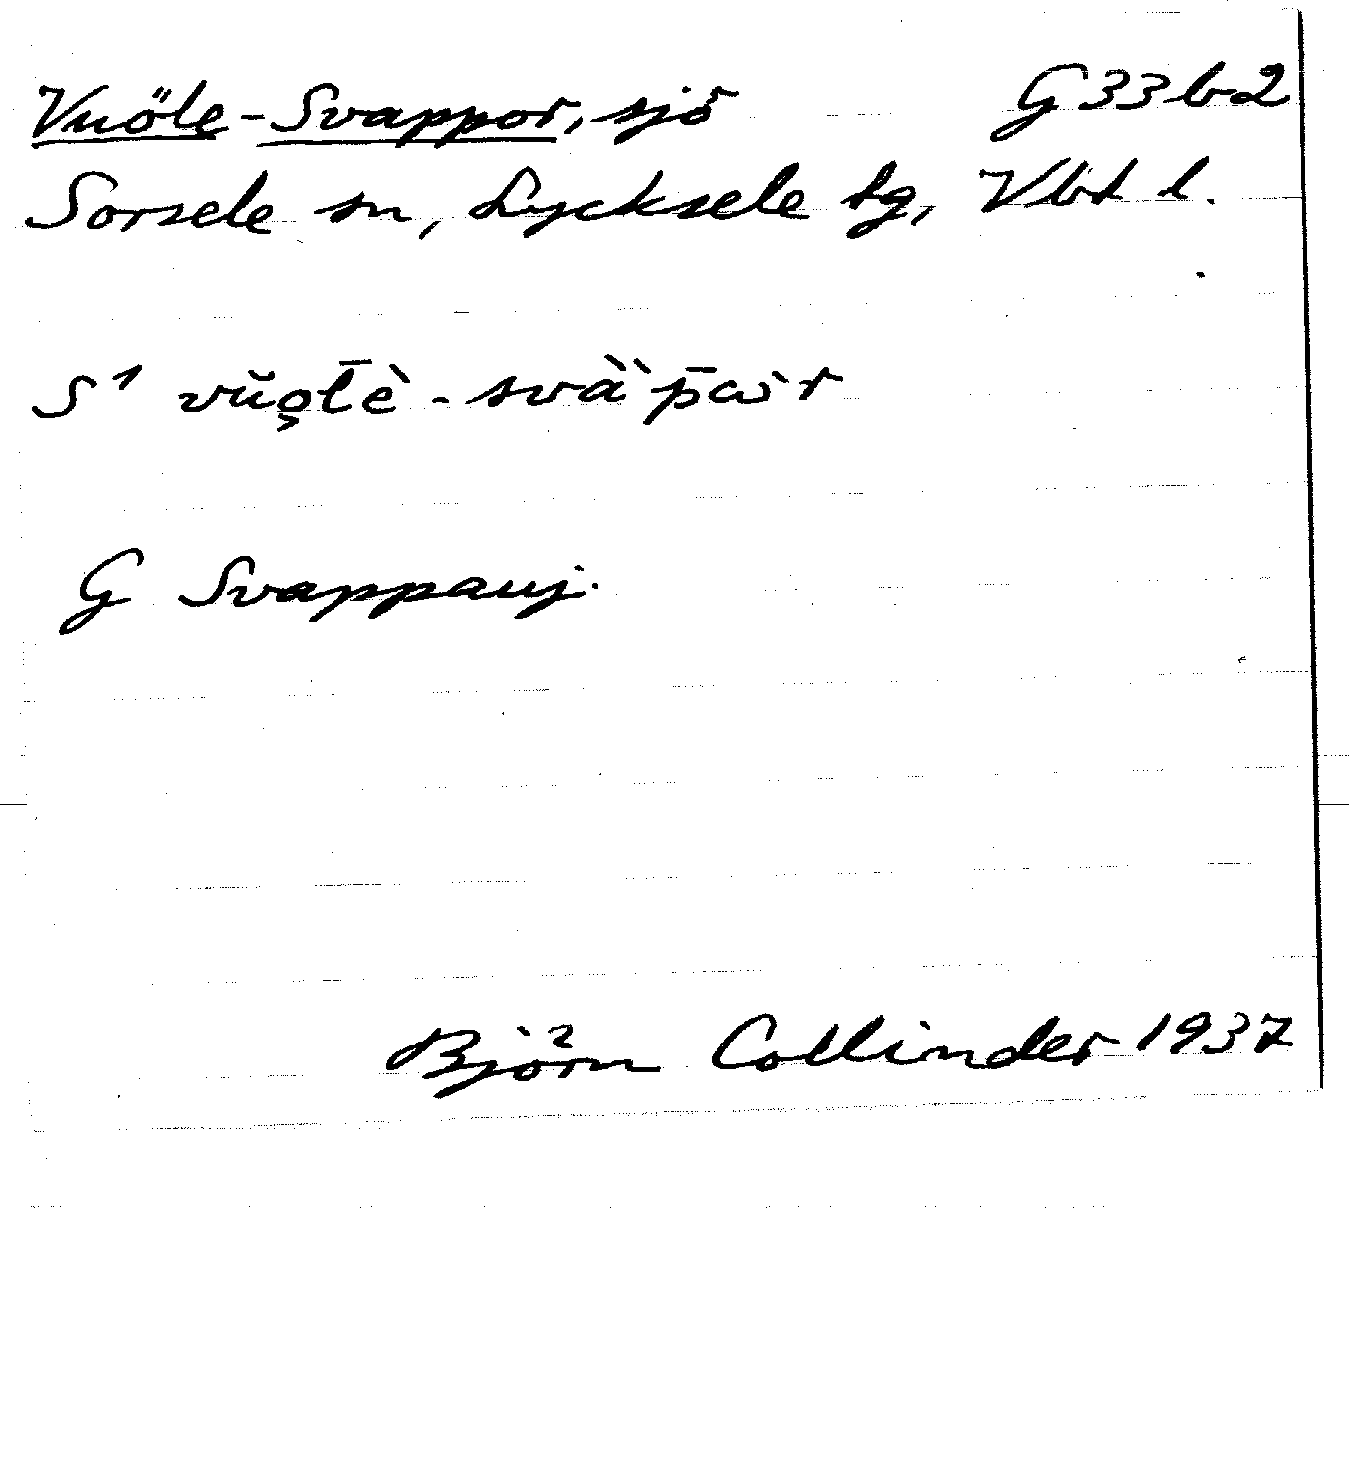 Vuöle-Svappor, sjö G33b2
Sorsele sn, Lycksele tg, Vbt l.
S¹ vŭo̧l̄è - svàp̄ὼr
G Svappauj.
Björn Collinder 1937